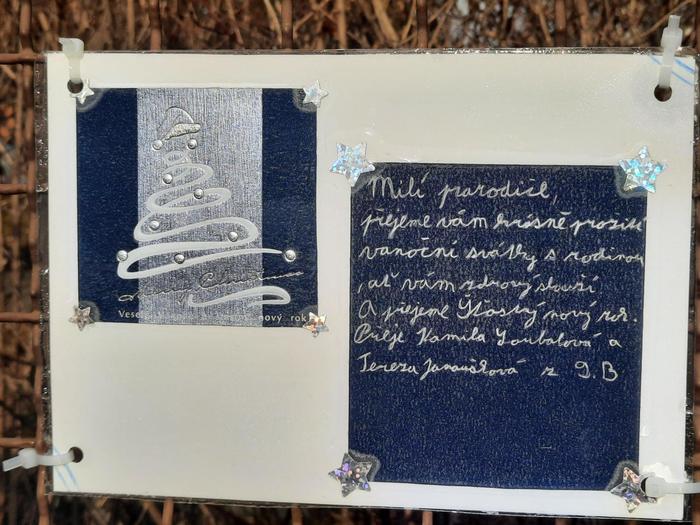 Merry Christmas
Vesel nový rok
Milí prarodiče,
přejeme vám krásně prožití
vanoční svátky s rodinou
, ať vám zdravý slouží
A přejeme Šťastný nový rok.
Přeje Kamila Loubalová a
Tereza z 9.B